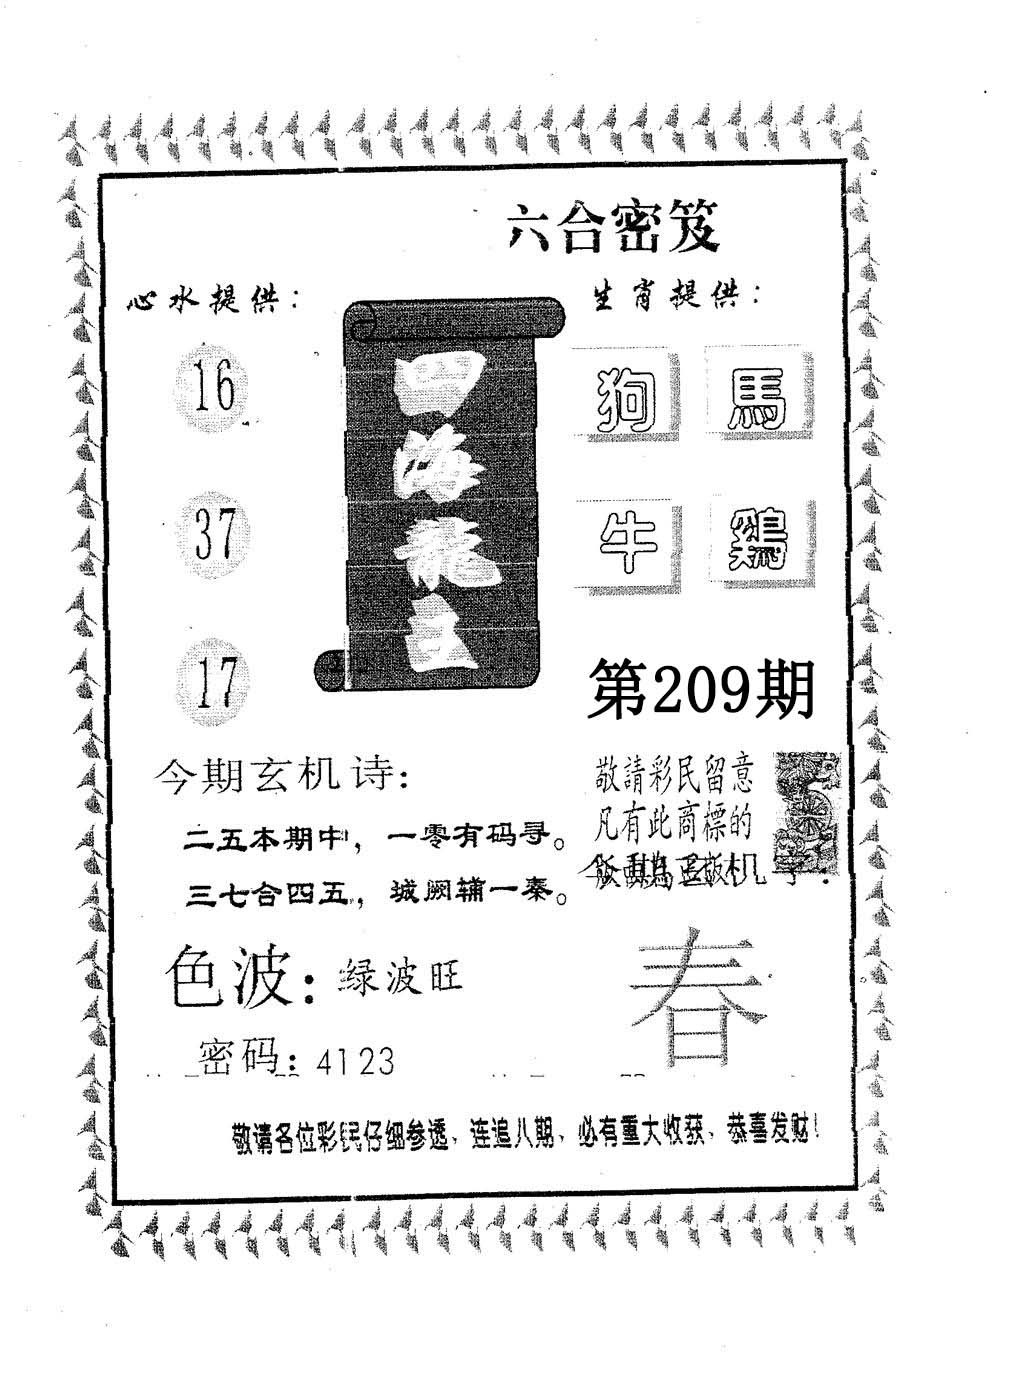 六合密笈
心水提供：
生肖提供：
16
37
17
四海龍王
狗 馬
牛 鷄
第209期
今期玄机诗：
二五本期中，一零有码寻。
三七合四五，城阙辅一秦。
敬請彩民留意
凡有此商標的
机字：
色波：绿波旺
春
密码：4123
敬请各位彩民仔细参透、连追八期、必有重大收获、恭喜发财！